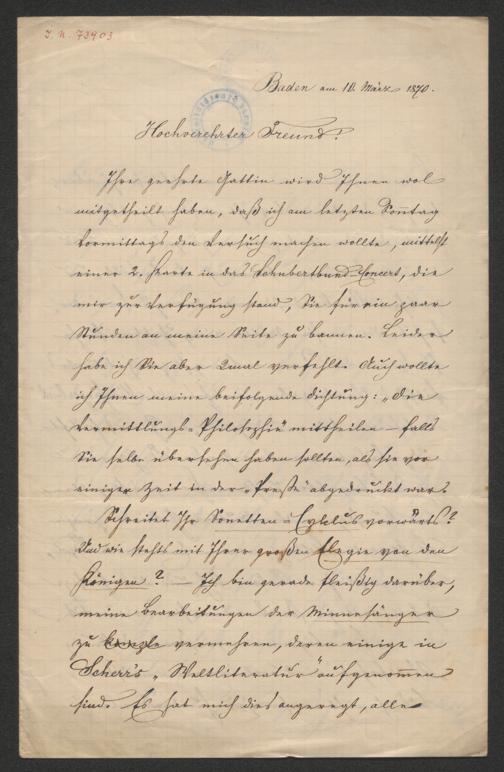 I. N. 73903
Baden am 10. März 1870.
Hochverehrter Freund!
Ihre geehrte Gattin wird Ihnen wol
mitgetheilt haben, daß ich am letzten Sonntag
Vormittags den Versuch machen wollte, mittelst
einer 2. Karte in das Schubertbund-Concert, die
mir zur Verfügung stand, Sie für ein paar
Stunden an meine Seite zu bannen. Leider
habe ich Sie aber 2mal verfehlt. Auch wollte
ich Ihnen meine beifolgende Dichtung: „Die
Vermittlungs-Philosophie" mittheilen – falls
Sie selbe übersehen haben sollten, als sie vor
einiger Zeit in der „Presse" abgedruckt war.
Schreitet Ihr Sonetten-Cyklus vorwärts?
Und wie stehts mit Ihrer großen Elegie von den
Königen? – Ich bin gerade fleißig darüber,
meine Bearbeitungen der Minnesänger
zu vermehren, deren einige in
Scherr's „Weltliteratur" aufgenommen
sind. Es hat mich dies angeregt, alle